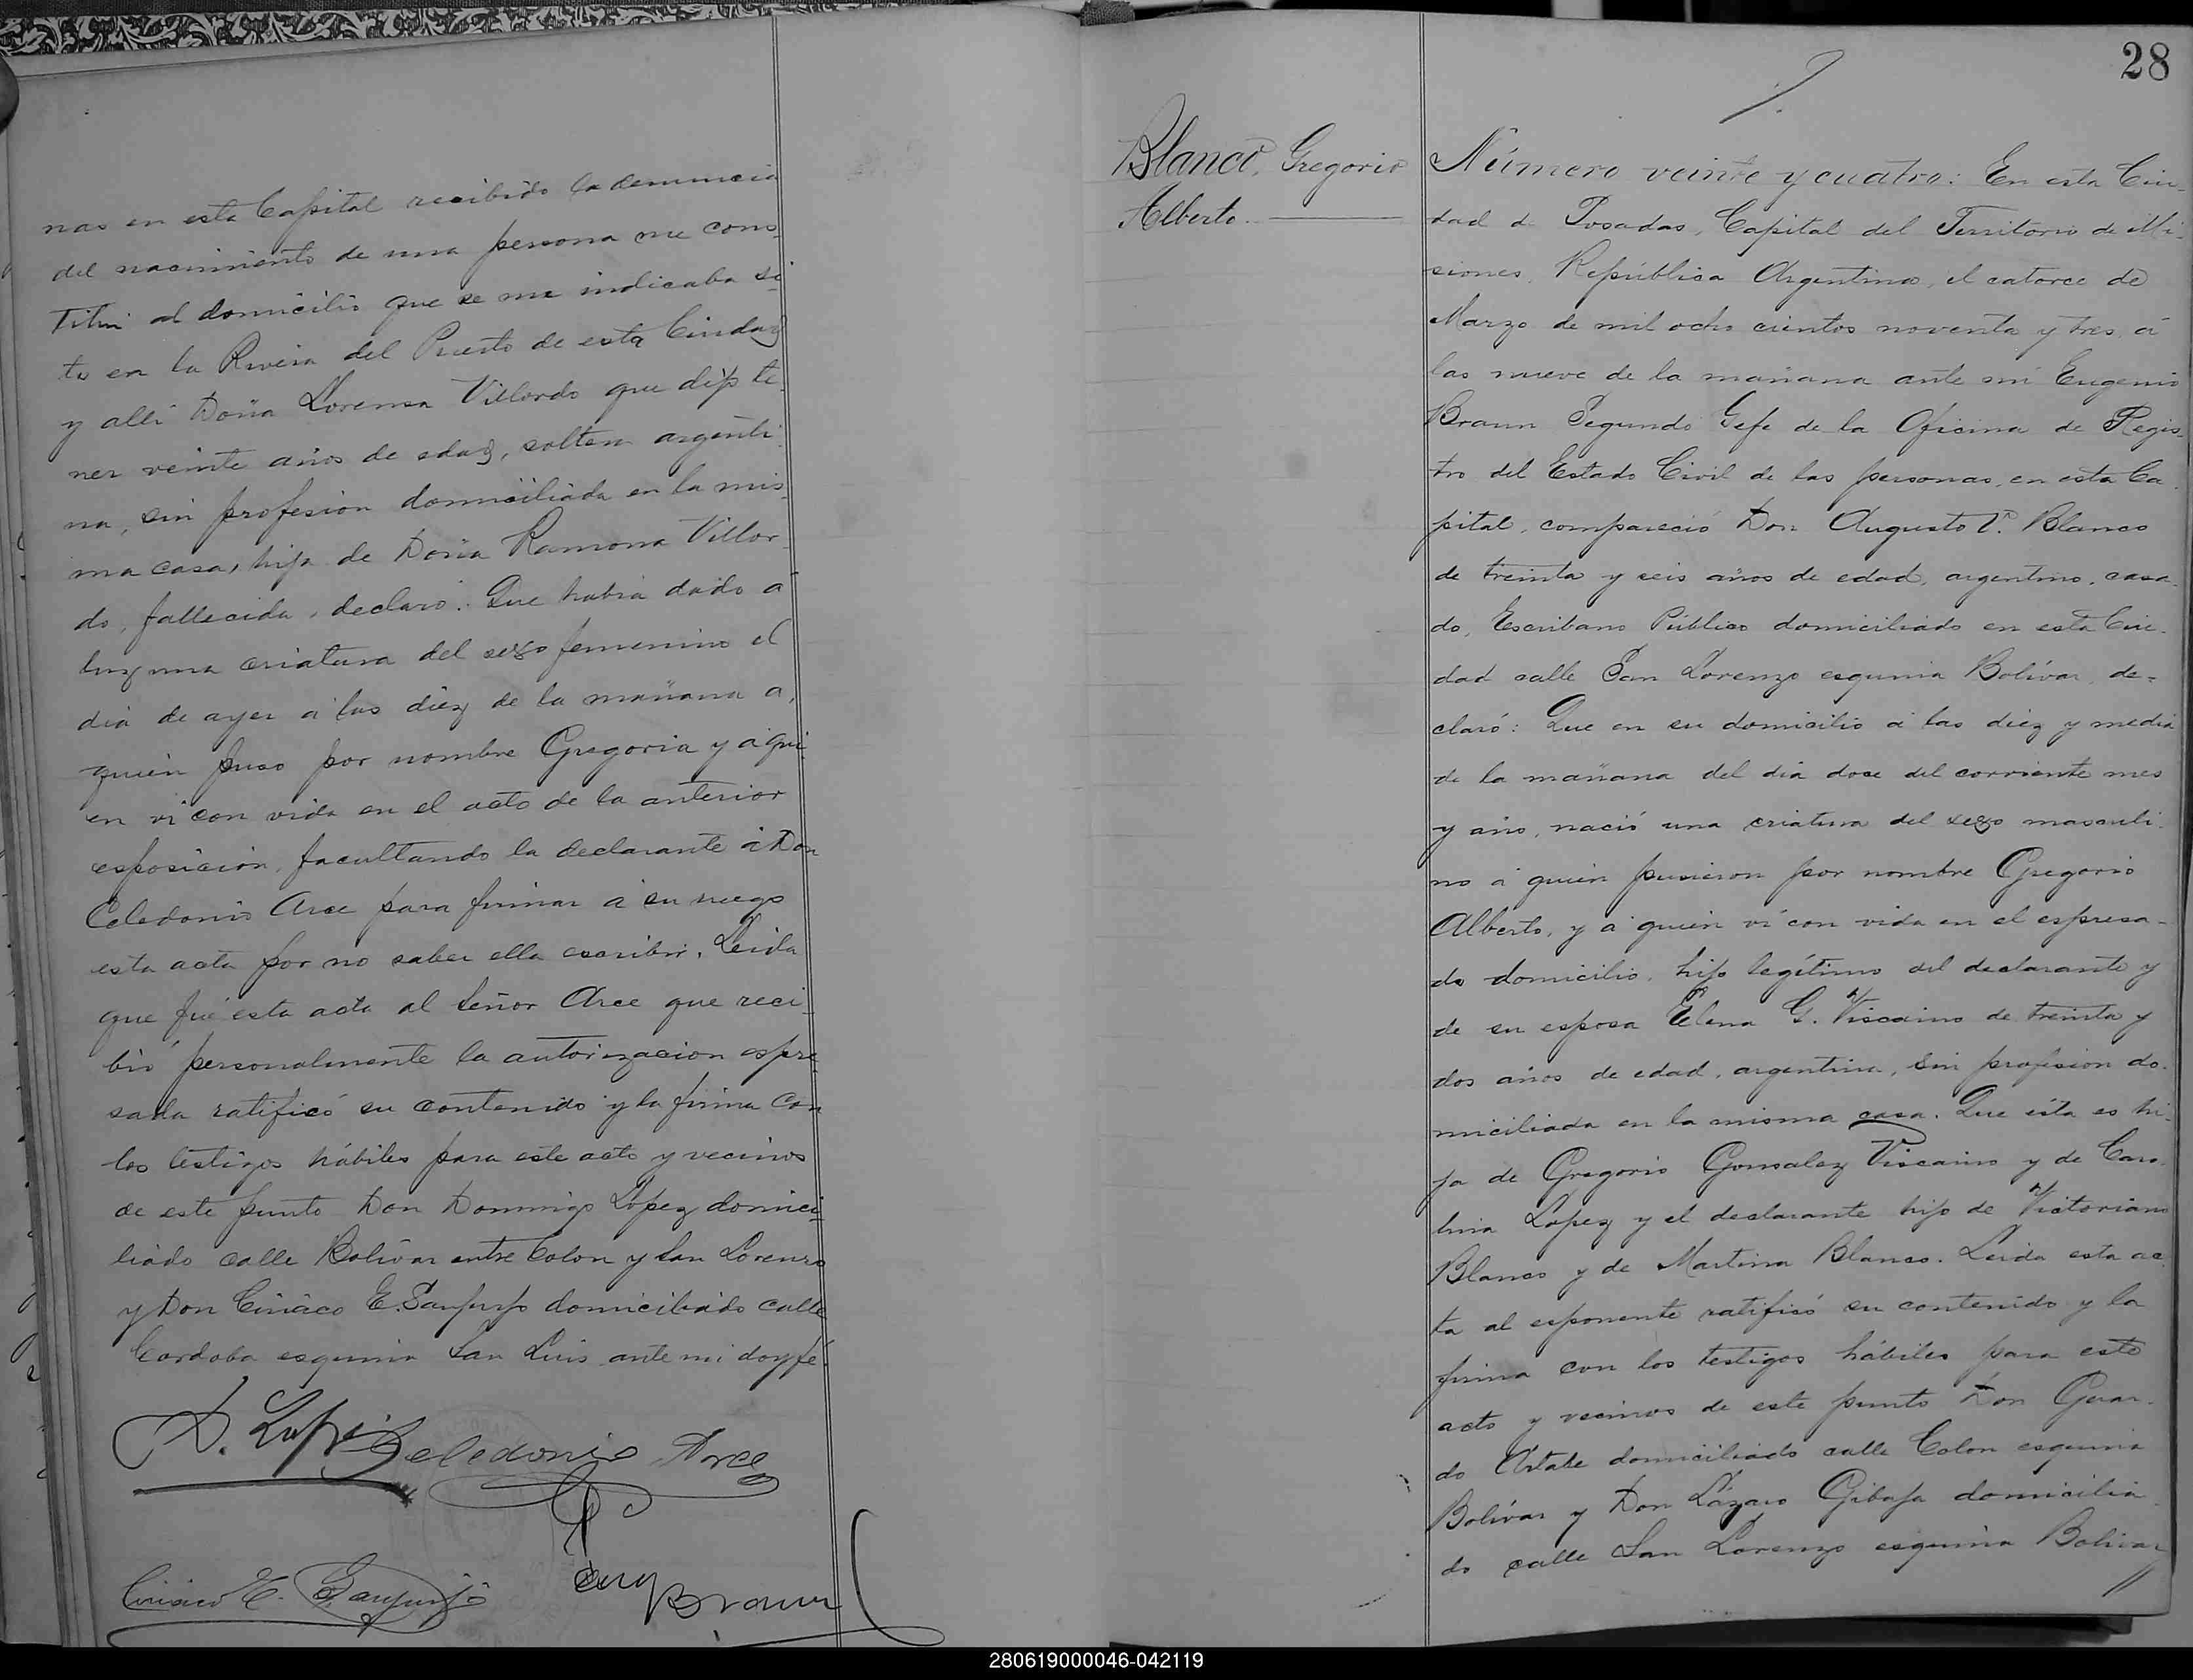 nas en esta Capital recibido la denuncia
del nacimiento de una persona me cons-
titui al domicilio que se me indicaba si-
to en la Rivera del Puerto de esta Ciudad
y alli Doña Lorensa Villordo que dijo te-
ner veinte años de edad, soltera argenti-
na, sin profesion domiciliada en la mis-
ma casa, hija de Doña Ramona Villor-
do, fallecida, declaró: Que habia dado a
luz una criatura del sexo femenino el
dia de ayer á las diez de la mañana a,
quien puso por nombre Gregoria y á qui
en vi con vida en el acto de la anterior
esposicion, facultando la declarante á Don
Celedonio Arce para firmar á su ruego
esta acta por no saber ella escribir. Leida
que fué esta acta al Señor Arce que reci-
bió personalmente la autorizacion espre
sada ratificó su contenido y la firma con
los testigos hábiles para este acto y vecinos
de este punto Don Domingo Lopez domici-
liado calle Bolivar entre Colon y San Lorenzo
y Don Ciriaco E. Sanjurjo domiciliado calle
Cordoba esquina San Luis ante mi doy fé
D. Lopez Celedonio Arce
Ciriaco E. Sanjurjo
Eug Braun
28
Blanco, Gregorio
Alberto.
Número veinte y cuatro: En esta Ciu-
dad de Posadas, Capital del Territorio de Mi-
siones, República Argentina, el catorce de
Marzo de mil ocho cientos noventa y tres, á
las nueve de la mañana ante mi Eugenio
Braun Segundo Gefe de la Oficina de Regis-
tro del Estado Civil de las personas, en esta Ca-
pital, compareció Don Augusto V. Blanco
de treinta y seis años de edad, argentino, casa-
do, Escribano Público domiciliado en esta Ciu-
dad calle San Lorenzo esquina Bolívar, de-
claró: Que en su domicilio á las diez y media
de la mañana del dia doce del corriente mes
y año, nació una criatura del sexo masculi-
no á quien pusieron por nombre Gregorio
Alberto, y á quien ví con vida en el espresa-
do domicilio, hijo legítimo del declarante y
de su esposa Elena G. Viscaino de treinta y
dos años de edad, argentina, sin profesion do-
miciliada en la misma casa. Que ésta es hi-
ja de Gregorio Gonsalez Viscaino y de Caro-
lina Lopez y el declarante hijo de Victoriano
Blanco y de Martina Blanco. Leida esta ac-
ta al esponente ratificó su contenido y la
firma con los testigos hábiles para este
acto y vecinos de este punto Don Guar-
do domiciliado calle Colon esquina
Bolívar y Don Lázaro Gibaja domicilia-
do calle San Lorenzo esquina Bolivar
280619000046-042119